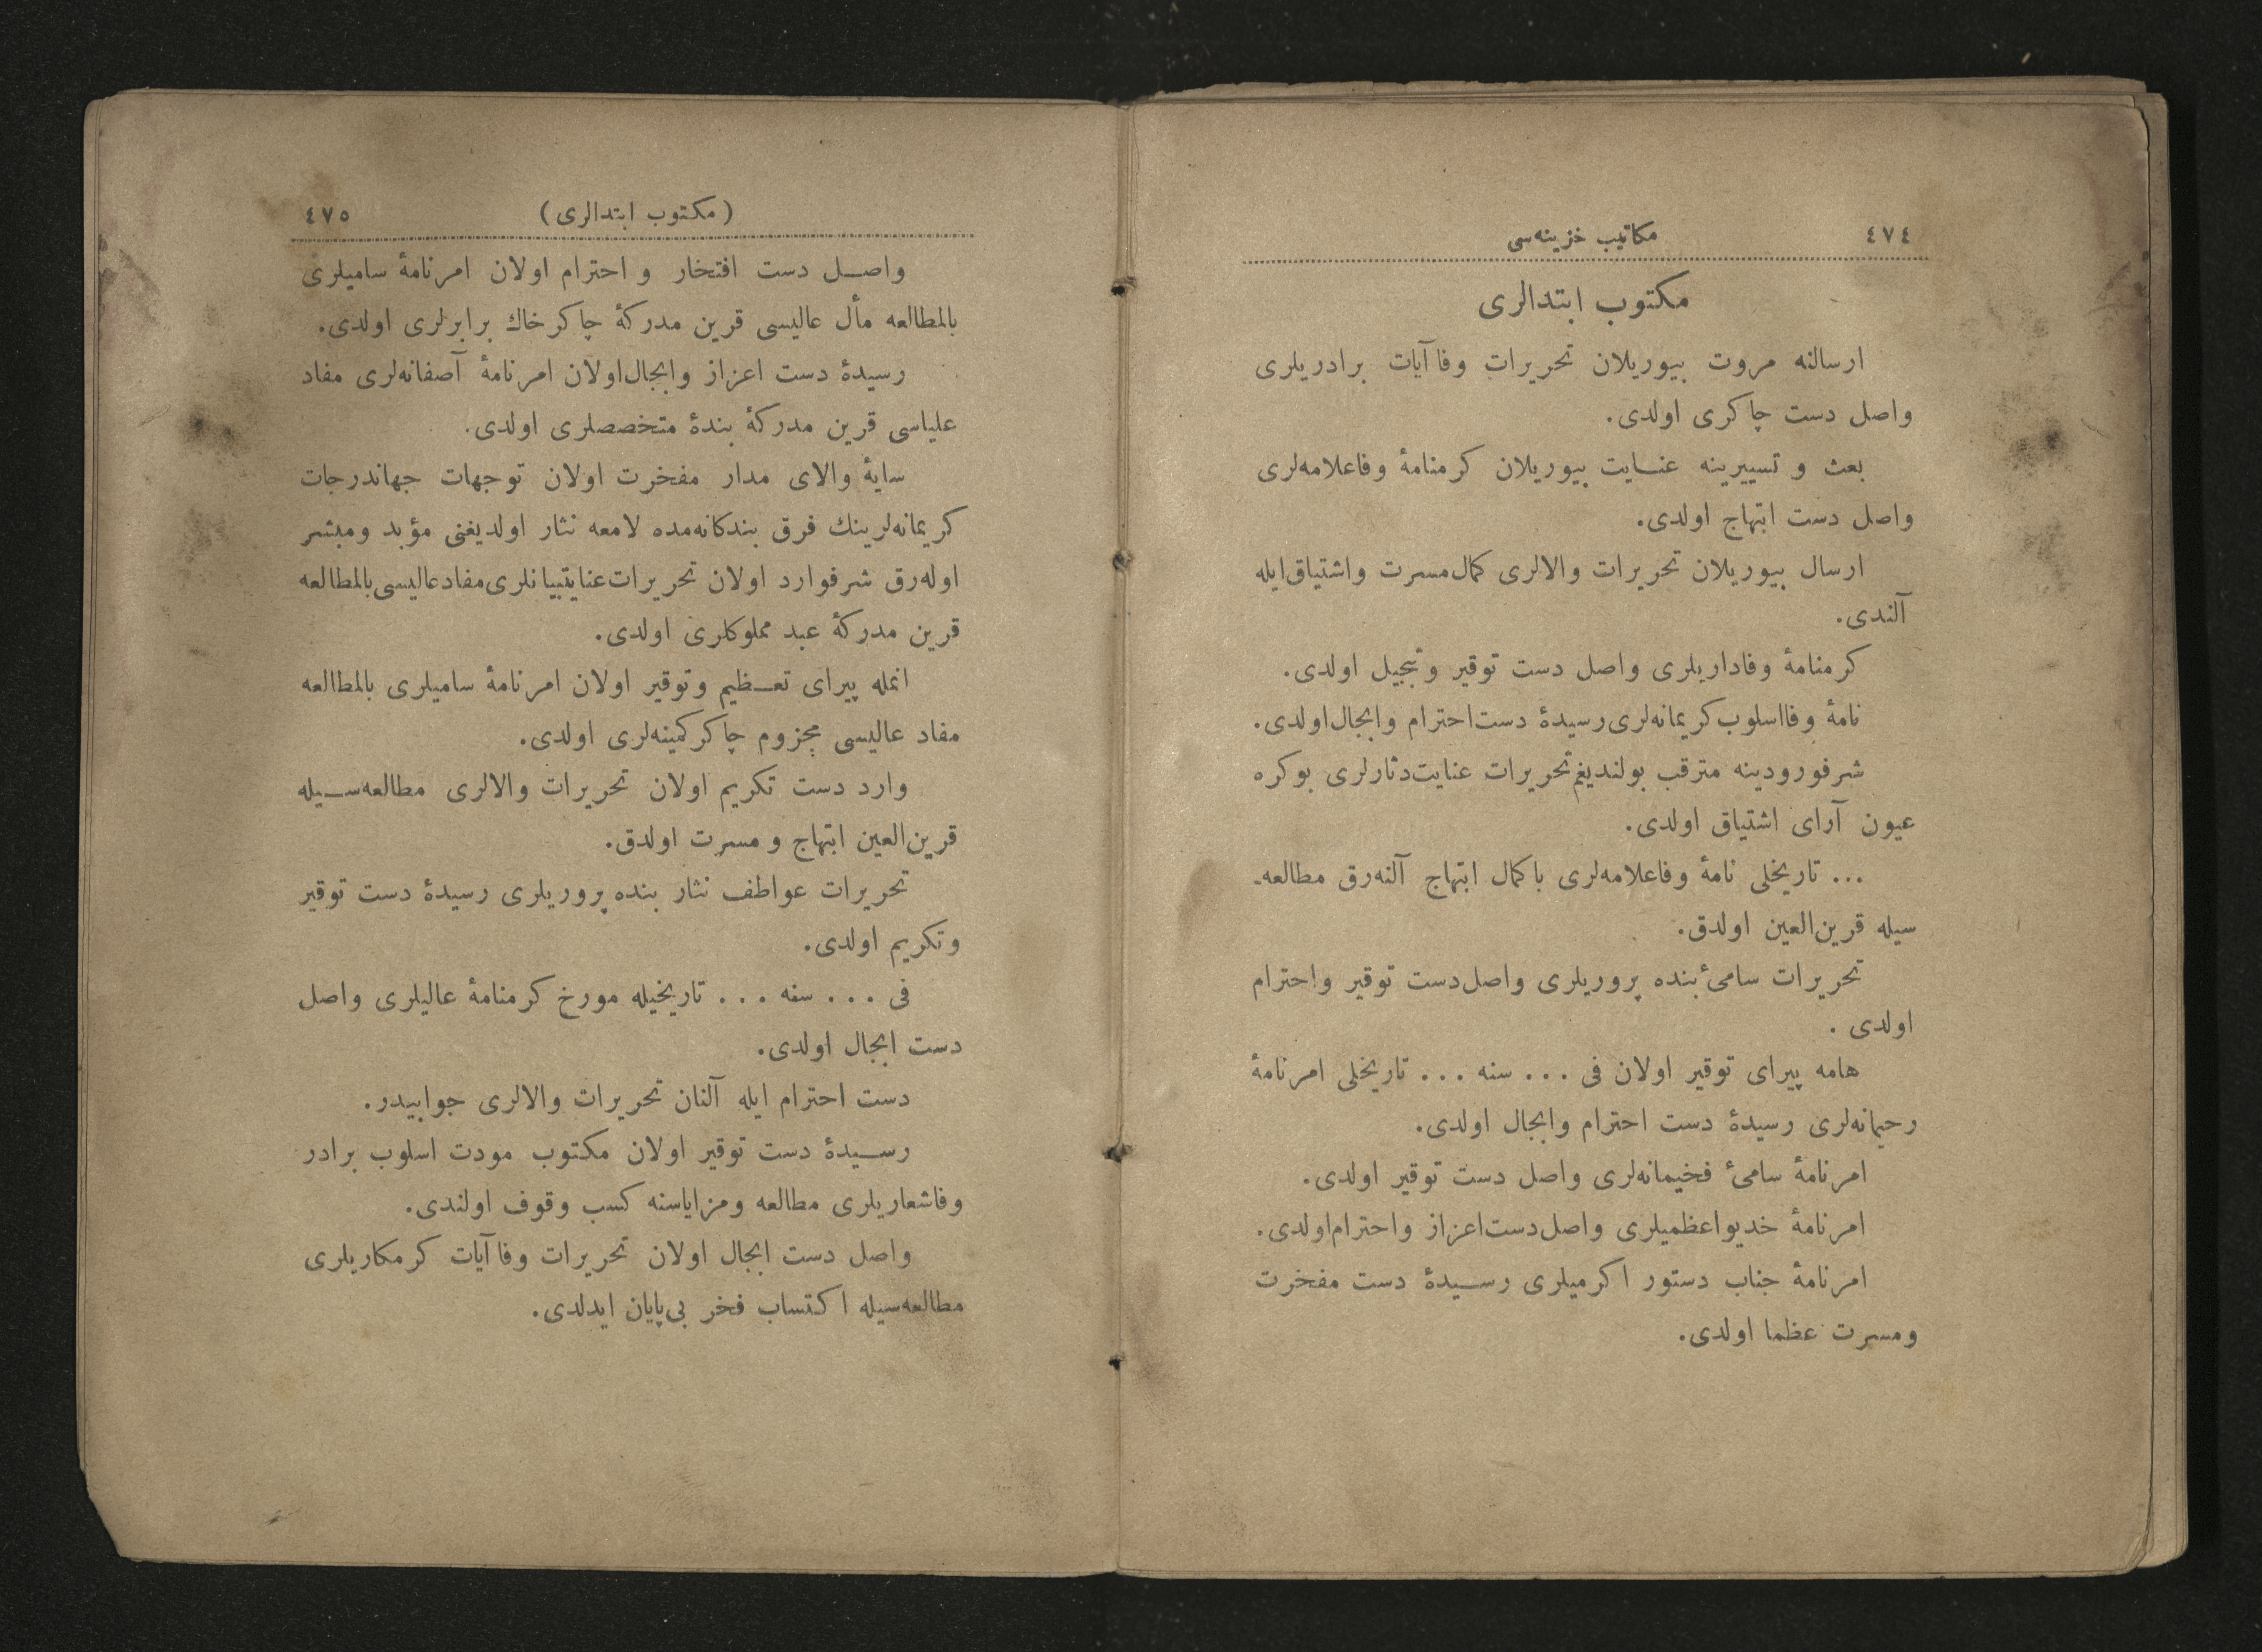 ٤٧٤
مكاتيب خزينه‌سى
مكتوب ابتدالرى
ارسالنه مروت بيوريلان تحريرات وفا آيات برادريلرى
واصل دست چاكرى اولدى.
بعث و تسييرينه عنايت بيوريلان كرمنامهٔ وفاعلامه‌لرى
واصل دست ابتهاج اولدى.
ارسال بيوريلان تحريرات والالرى كمال مسرت واشتياق ايله
آلندى.
كرمنامهٔ وفاداريلرى واصل دست توقير وتبجيل اولدى.
نامهٔ وفااسلوب كريمانه‌لرى رسيدهٔ دست احترام وابجال اولدى.
شرفورودينه مترقب بولنديغم تحريرات عنايت‌دثارلرى بوكره
عيون آراى اشتياق اولدى.
... تاريخلى نامهٔ وفاعلامه‌لرى باكمال ابتهاج آلنه‌رق مطالعه‌ـ
سيله قرين‌العين اولدق.
تحريرات سامىٔ بنده پروريلرى واصل دست توقير واحترام
اولدى .
هامه پيراى توقير اولان فى ... سنه ... تاريخلى امرنامهٔ
رحيمانه‌لرى رسيدهٔ دست احترام وابجال اولدى.
امرنامهٔ سامىٔ فخيمانه‌لرى واصل دست توقير اولدى.
امرنامهٔ خديواعظميلرى واصل دست اعزاز واحترام اولدى.
امرنامهٔ جناب دستور اكرميلرى رسيدهٔ دست مفخرت
ومسرت عظما اولدى.
(مكتوب ابتدالرى)
٤٧٥
واصل دست افتخار و احترام اولان امرنامهٔ ساميلرى
بالمطالعه مأل عاليسى قرين مدركهٔ چاكر خاك برابرلرى اولدى.
رسيدهٔ دست اعزاز وابجال اولان امرنامهٔ آصفانه‌لرى مفاد
علياسى قرين مدركهٔ بندهٔ متخصصلرى اولدى.
سايهٔ والاى مدار مفخرت اولان توجهات جهاندرجات
كريمانه‌لرينك فرق بندكانه‌مده لامعه نثار اولديغنى مؤيد ومبشر
اوله‌رق شرفوارد اولان تحريرات عنايتبيانلرى مفاد عاليسى بالمطالعه
قرين مدركهٔ عبد مملوكلرى اولدى.
انمله پيراى تعظيم وتوقير اولان امرنامهٔ ساميلرى بالمطالعه
مفاد عاليسى مجزوم چاكر كمينه‌لرى اولدى.
وارد دست تكريم اولان تحريرات والالرى مطالعه‌سيله
قرين‌العين ابتهاج و مسرت اولدق.
تحريرات عواطف نثار بنده پروريلرى رسيدهٔ دست توقير
وتكريم اولدى.
فى ... سنه ... تاريخيله مورخ كرمنامهٔ عاليلرى واصل
دست ابجال اولدى.
دست احترام ايله آلنان تحريرات والالرى جوابيدر.
رسيدهٔ دست توقير اولان مكتوب مودت اسلوب برادر
وفاشعاريلرى مطالعه ومزاياسنه كسب وقوف اولندى.
واصل دست ابجال اولان تحريرات وفا آيات كرمكاريلرى
مطالعه‌سيله اكتساب فخر بى‌پايان ايدلدى.